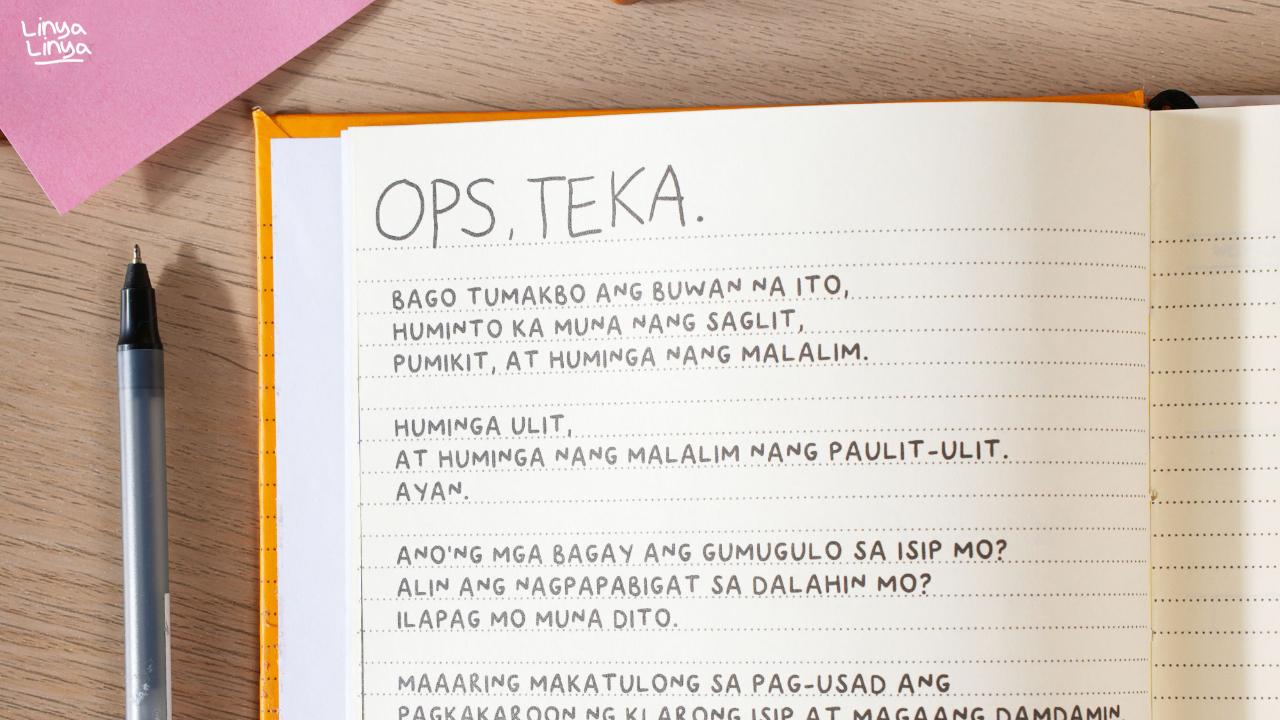 Linya
Linya
OPS, TEKA.
BAGO TUMAKBO ANG BUWAN NA ITO,
HUMINTO KA MUNA NANG SAGLIT,
PUMIKIT, AT HUMINGA NANG MALALIM.
HUMINGA ULIT,
AT HUMINGA NANG MALALIM NANG PAULIT-ULIT.
AYAN.
ANO'NG MGA BAGAY ANG GUMUGULO SA ISIP MO?
ALIN ANG NAGPAPABIGAT SA DALAHIN MO?
ILAPAG MO MUNA DITO.
MAAARING MAKATULONG SA PAG-USAD ANG
PAGKAKAROON NG KLARONG ISIP AT MAGAANG DAMDAMIN.